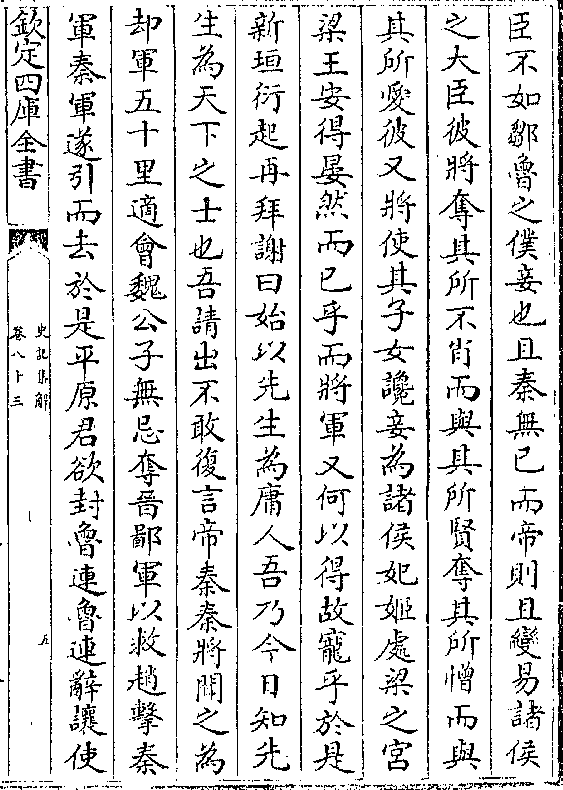 臣不如鄒魯之僕妾也且秦無已而帝則且變易諸侯
之大臣彼將奪其所不肖而與其所賢奪其所憎而與
其所愛彼又將使其子女讒妾為諸侯妃姬處梁之宮
梁王安得晏然而已乎而將軍又何以得故寵乎於是
新垣衍起再拜謝曰始以先生為庸人吾乃今日知先
生為天下之士也吾請出不敢復言帝秦秦將聞之為
却軍五十里適會魏公子無忌奪晉鄙軍以救趙擊秦
軍秦軍遂引而去於是平原君欲封魯連魯連辭讓使
欽定四庫全書
史記集解
卷八十三
五